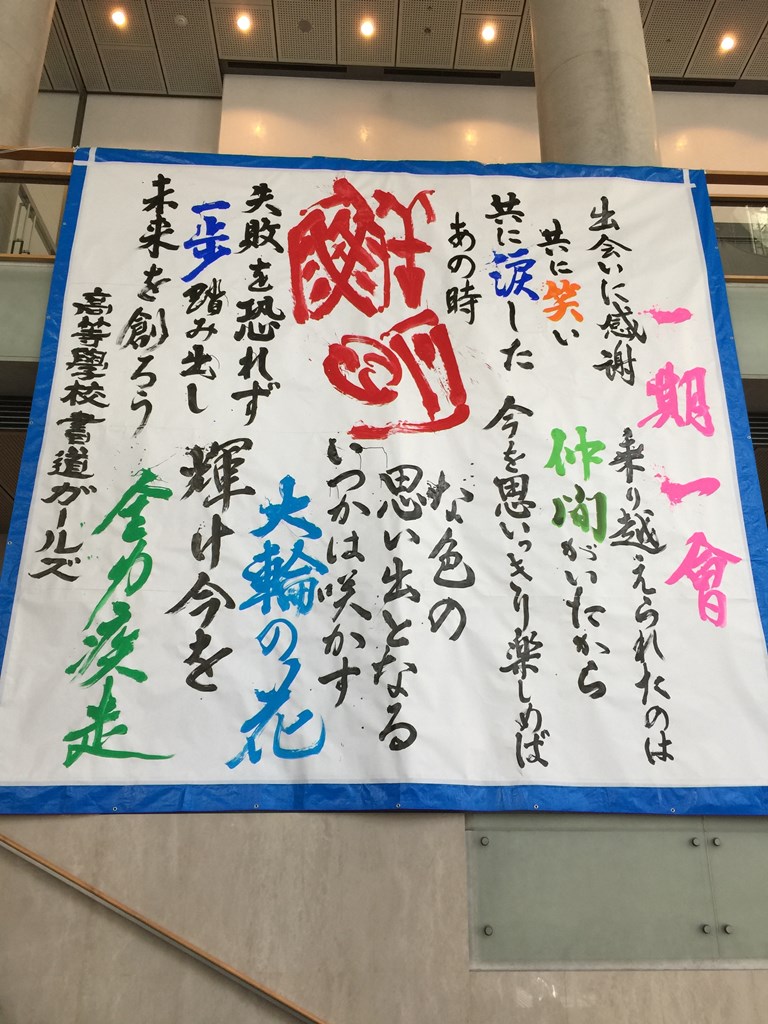 一期一會
出会いに感謝
共に笑い
共に涙した
あの時
乗り越えられたのは
仲間がいたから
今を思いっきり楽しめば
鮮明
な色の
思い出となる
いつかは咲かす
大輪の花
失敗を恐れず
一歩踏み出し
未来を創ろう
輝け今を
全力疾走
高等學校書道ガールズ